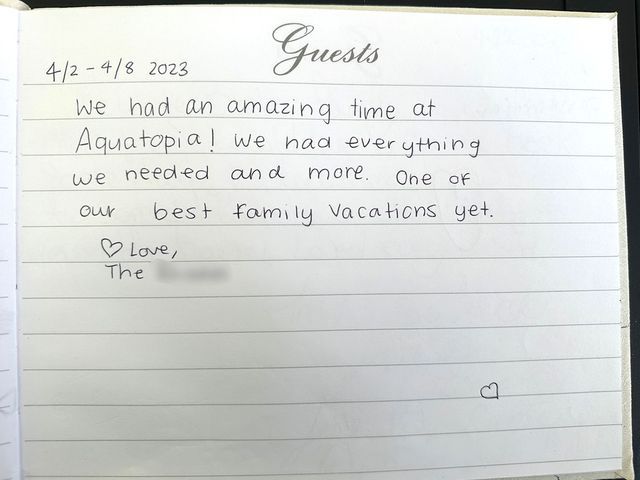 Guests
4/2 - 4/8 2023
We had an amazing time at
Aquatopia! We had everything
we needed and more. One of
our best family vacations yet.
♡ Love,
The